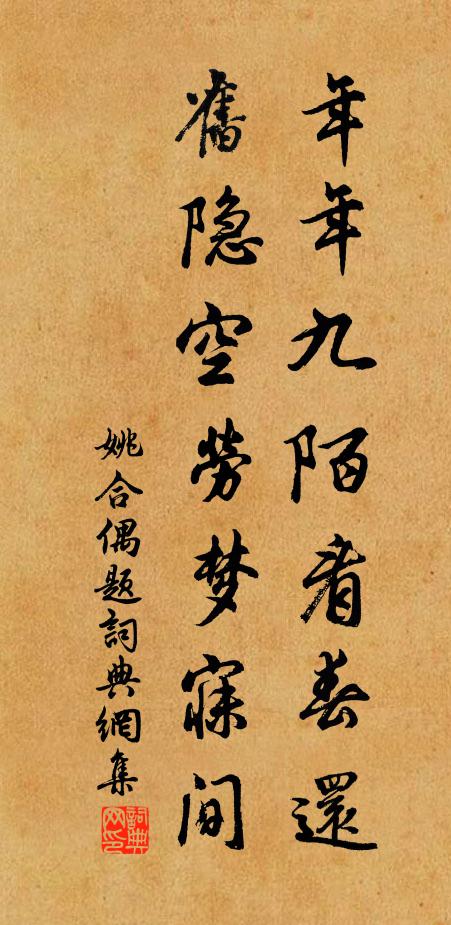 年年九陌看春還
舊隐空勞梦寐间
姚合偶题詞典網集
詞典网印